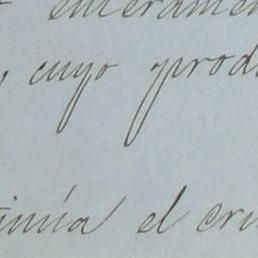 enteramen
, cuyo prod
tinúa el cri